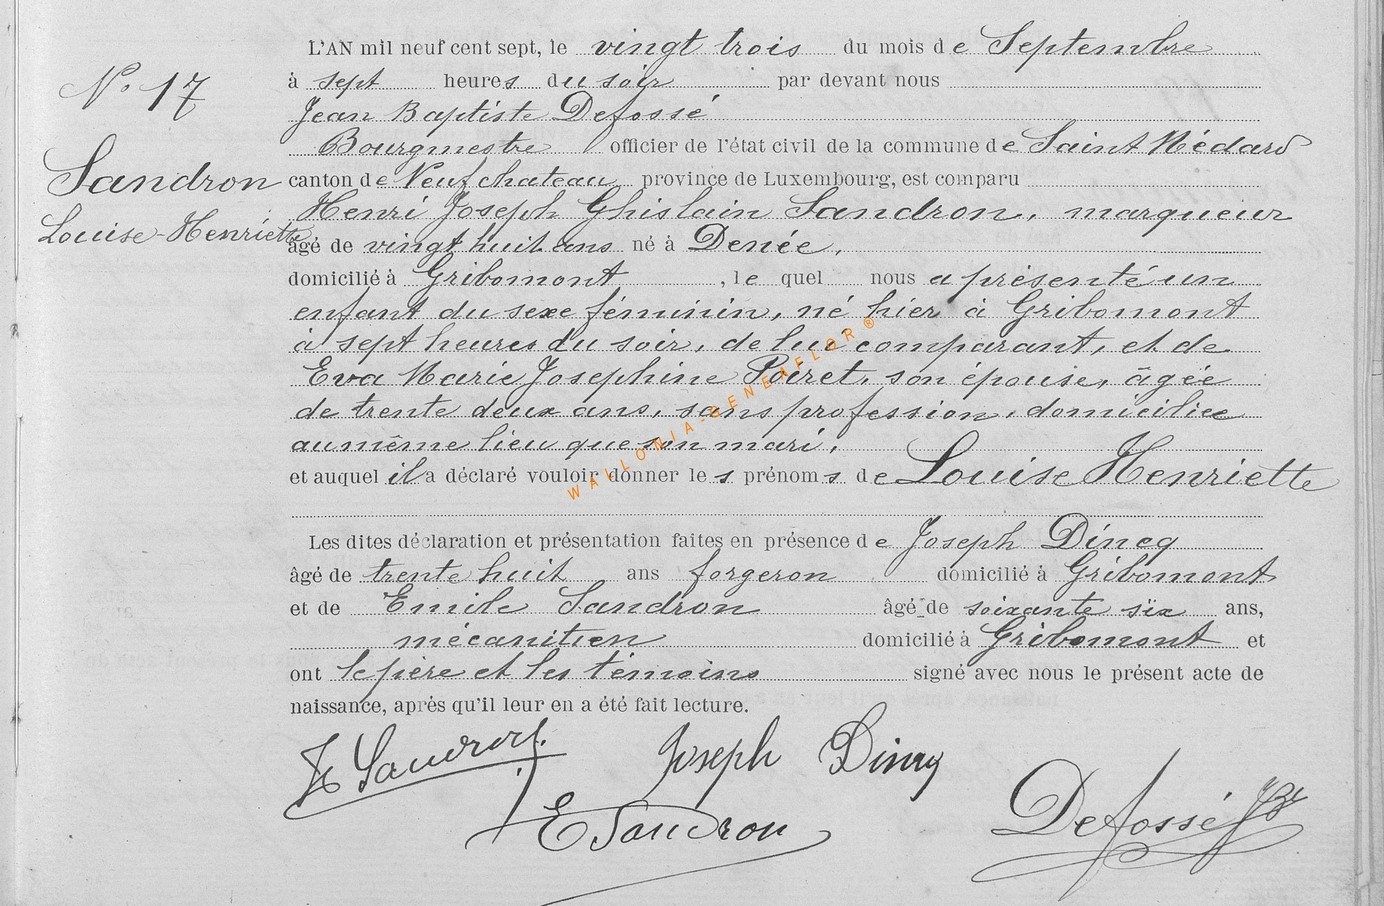 L'AN mil neuf cent sept, le vingt trois du mois de Septembre
à sept heures du soir par devant nous
N° 17
Jean Baptiste Defossé
Bourgmestre officier de l'état civil de la commune de Saint Médard
Sandron
canton de Neufchateau province de Luxembourg, est comparu
Henri Joseph Ghislain Sandron, marqueur
Louise-Henriette
âgé de vingt huit ans né à Denée,
domicilié à Gribomont, le quel nous a présenté un
enfant du sexe féminin, né hier à Gribomont
à sept heures du soir, de lui comparant, et de
Eva Marie Josephine Poiret, son épouse, âgée
de trente deux ans, sans profession, domiciliée
au même lieu que son mari,
et auquel il a déclaré vouloir donner les prénoms de Louise Henriette
WALLONIA-GENEAFLOR ®
Les dites déclaration et présentation faites en présence de Joseph Dincq
âgé de trente huit ans forgeron domicilié à Gribomont
et de Emile Sandron âgé de soixante six ans,
mécanitien domicilié à Gribomont et
ont le père et les témoins signé avec nous le présent acte de
naissance, après qu'il leur en a été fait lecture.
H Sandron. Joseph Dincq
E Sandron Defossé JB